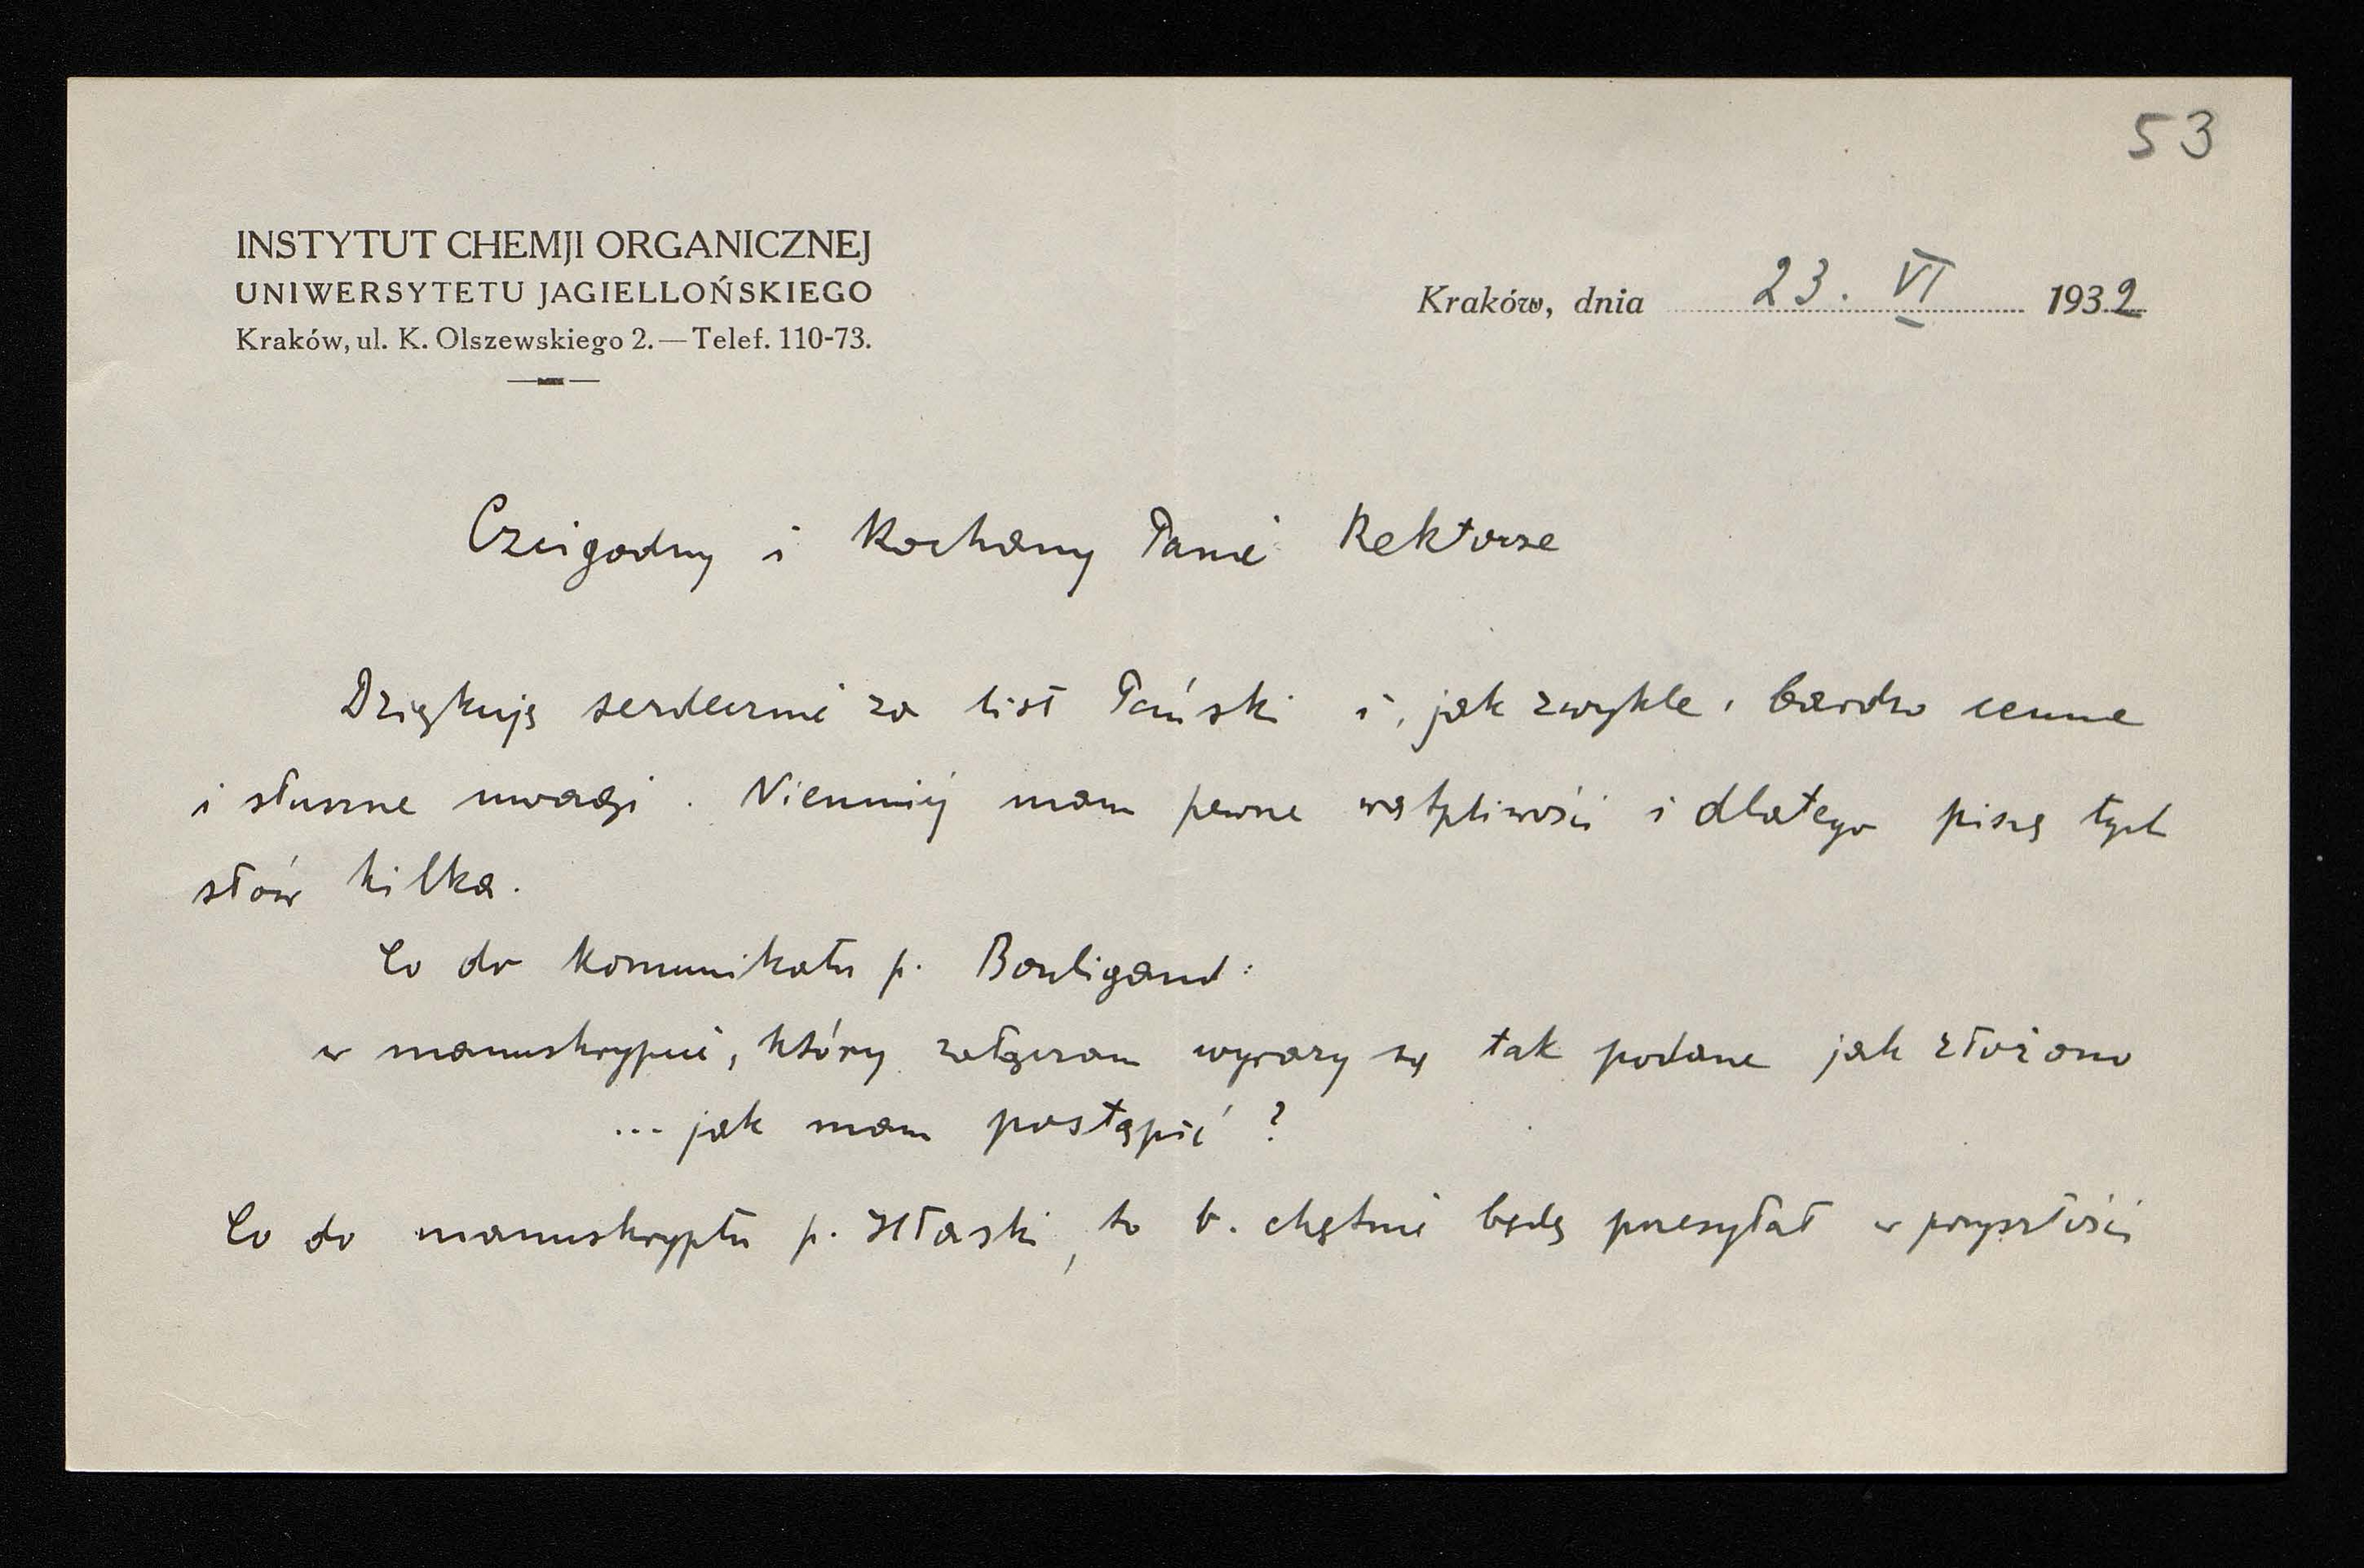 53
INSTYTUT CHEMJI ORGANICZNEJ
UNIWERSYTETU JAGIELLOŃSKIEGO
Kraków, ul. K. Olszewskiego 2. — Telef. 110-73.
Kraków, dnia 23. VI 1932
Czcigodny i Kochany Panie Rektorze
Dziękuję serdecznie za list Pański i, jak zwykle, bardzo cenne
i słuszne uwagi. Niemniej mam pewne wątpliwości i dlatego piszę tych
słów kilka.
Co do komunikatu p. Bouligand:
w manuskrypcie, który załączam wyrazy są tak podane jak złożono
... jak mam postąpić?
Co do manuskryptu p. Hłaski, to b. chętnie będę przesyłał w przyszłości